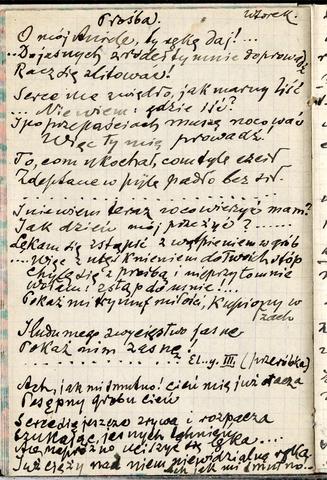 Prośba. Wtorek.
O mój Aniele, ty rękę daj!...
...Do jasnych źródeł ty mnie doprowadź
Racz się zlitować!
Serce me zwiędło, jak marny liść
... Nie wiem: gdzie iść?
I po przepaściach muszę nocować
Więc ty mię prowadź
To, com ukochał, com tyle czcił
Zdeptane w pyle padło bez sił.
I nie wiem teraz w co wierzyć mam?
Jak dzień mój przeżyć?
Lękam się zstąpić z wątpieniem w grób
...Więc z uściśnieniem do Twoich stóp
Chylę się z prośbą i nieprzytomnie
Wołam: zstąp do mnie!...
Pokaż mi tryumf miłości, kupiony w
łzach
I ludu mego zwycięstwo jasne
Pokaż nim zasnę
El..y. III. (przeróbka)
Ach, jak mi smutno! cień mię już otacza
Posępny grobu cień
Serce się jeszcze zrywa i rozpacza
Szukając jasnych
Ale napróżno uciszyć się lęka....
Już cięży nad niem niewidzialna ręka
Ach jak mi smutno...